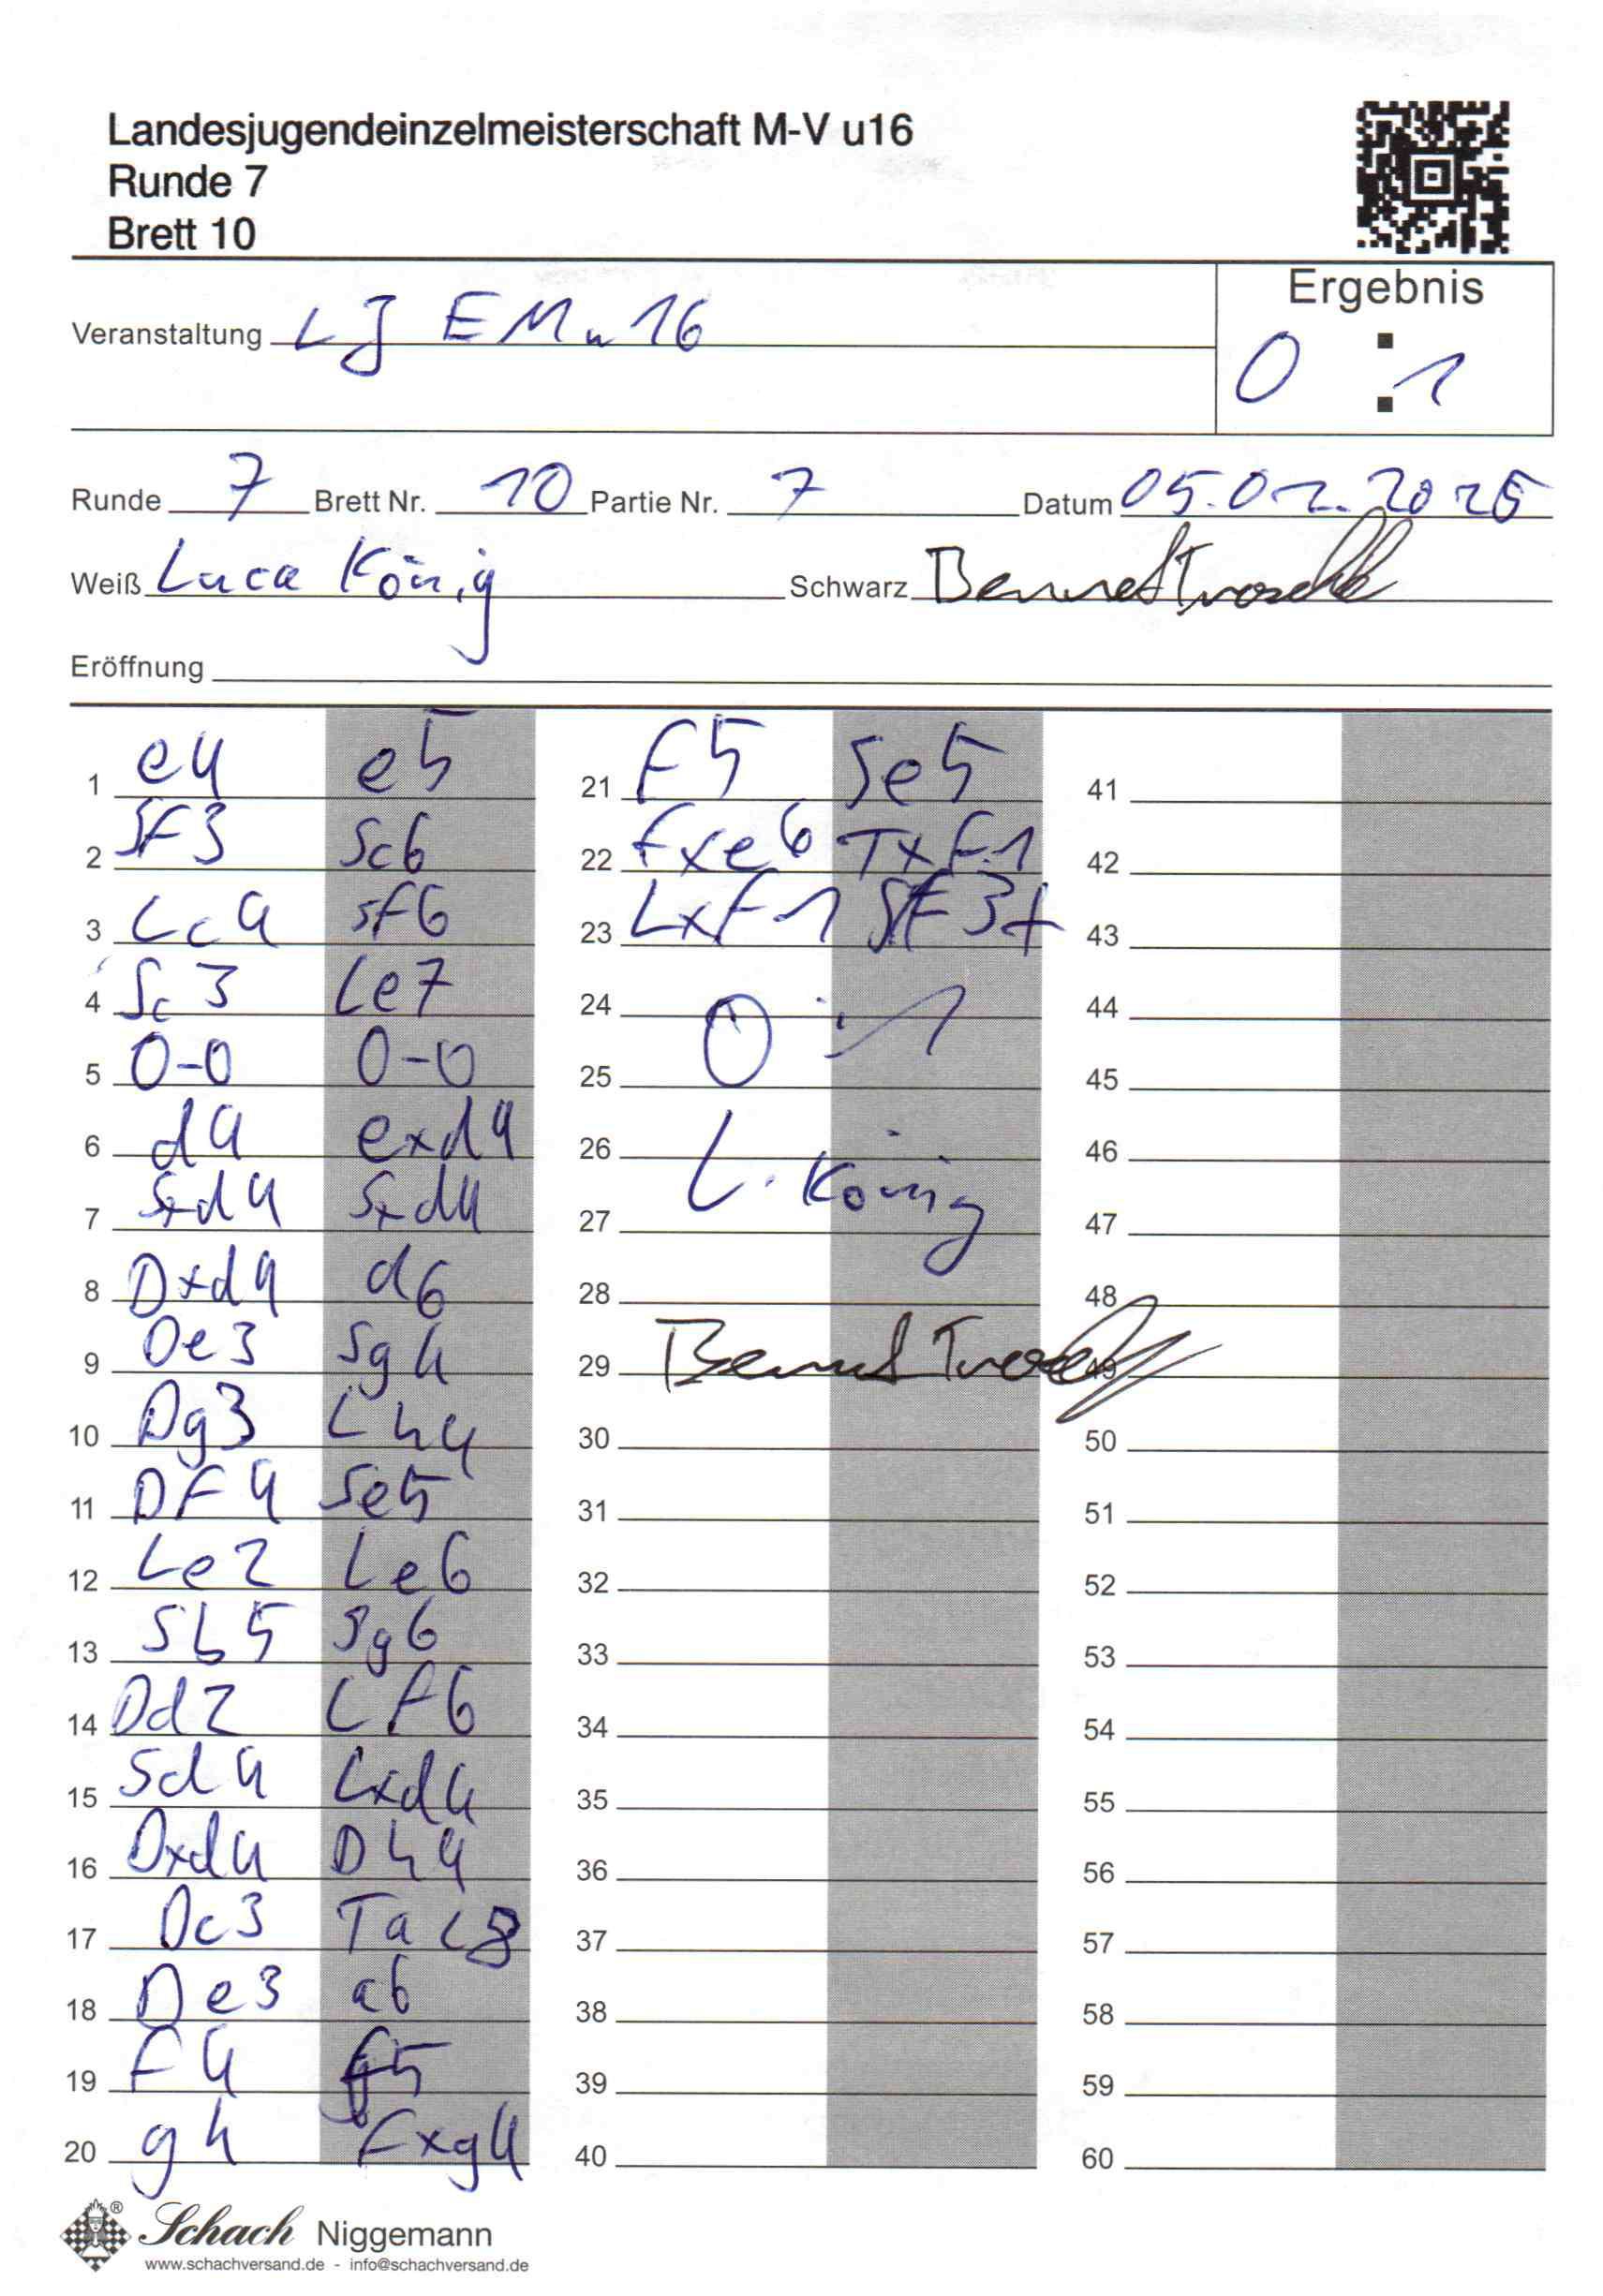 Landesjugendeinzelmeisterschaft M-V u16
Runde 7
Brett 10
Ergebnis
Veranstaltung LJEM u16
0 : 1
Runde 7 Brett Nr. 10 Partie Nr. 7 Datum 05.02.2025
Weiß Luca König Schwarz Bennet
Eröffnung
1 e4 e5
2 Sf3 Sc6
3 Lc4 Sf6
4 Sc3 Le7
5 0-0 0-0
6 d4 exd4
7 Sxd4 Sxd4
8 Dxd4 d6
9 De3 Sg4
10 Dg3 Lh4
11 DF4 Se5
12 Le2 Le6
13 Sb5 Sg6
14 Dd2 Lf6
15 Sd4 Lxd4
16 Dxd4 Dh4
17 Dc3 Tac8
18 De3 a6
19 F4 f5
20 g4 Fxg4
21 F5 Se5
22 fxe6 TxF1
23 LxF1 SF3+
24
0 : 1
25
26
L. König
27
28
29 Bennet
30
31
32
33
34
35
36
37
38
39
40
41
42
43
44
45
46
47
48
49
50
51
52
53
54
55
56
57
58
59
60
® Schach Niggemann
www.schachversand.de - info@schachversand.de